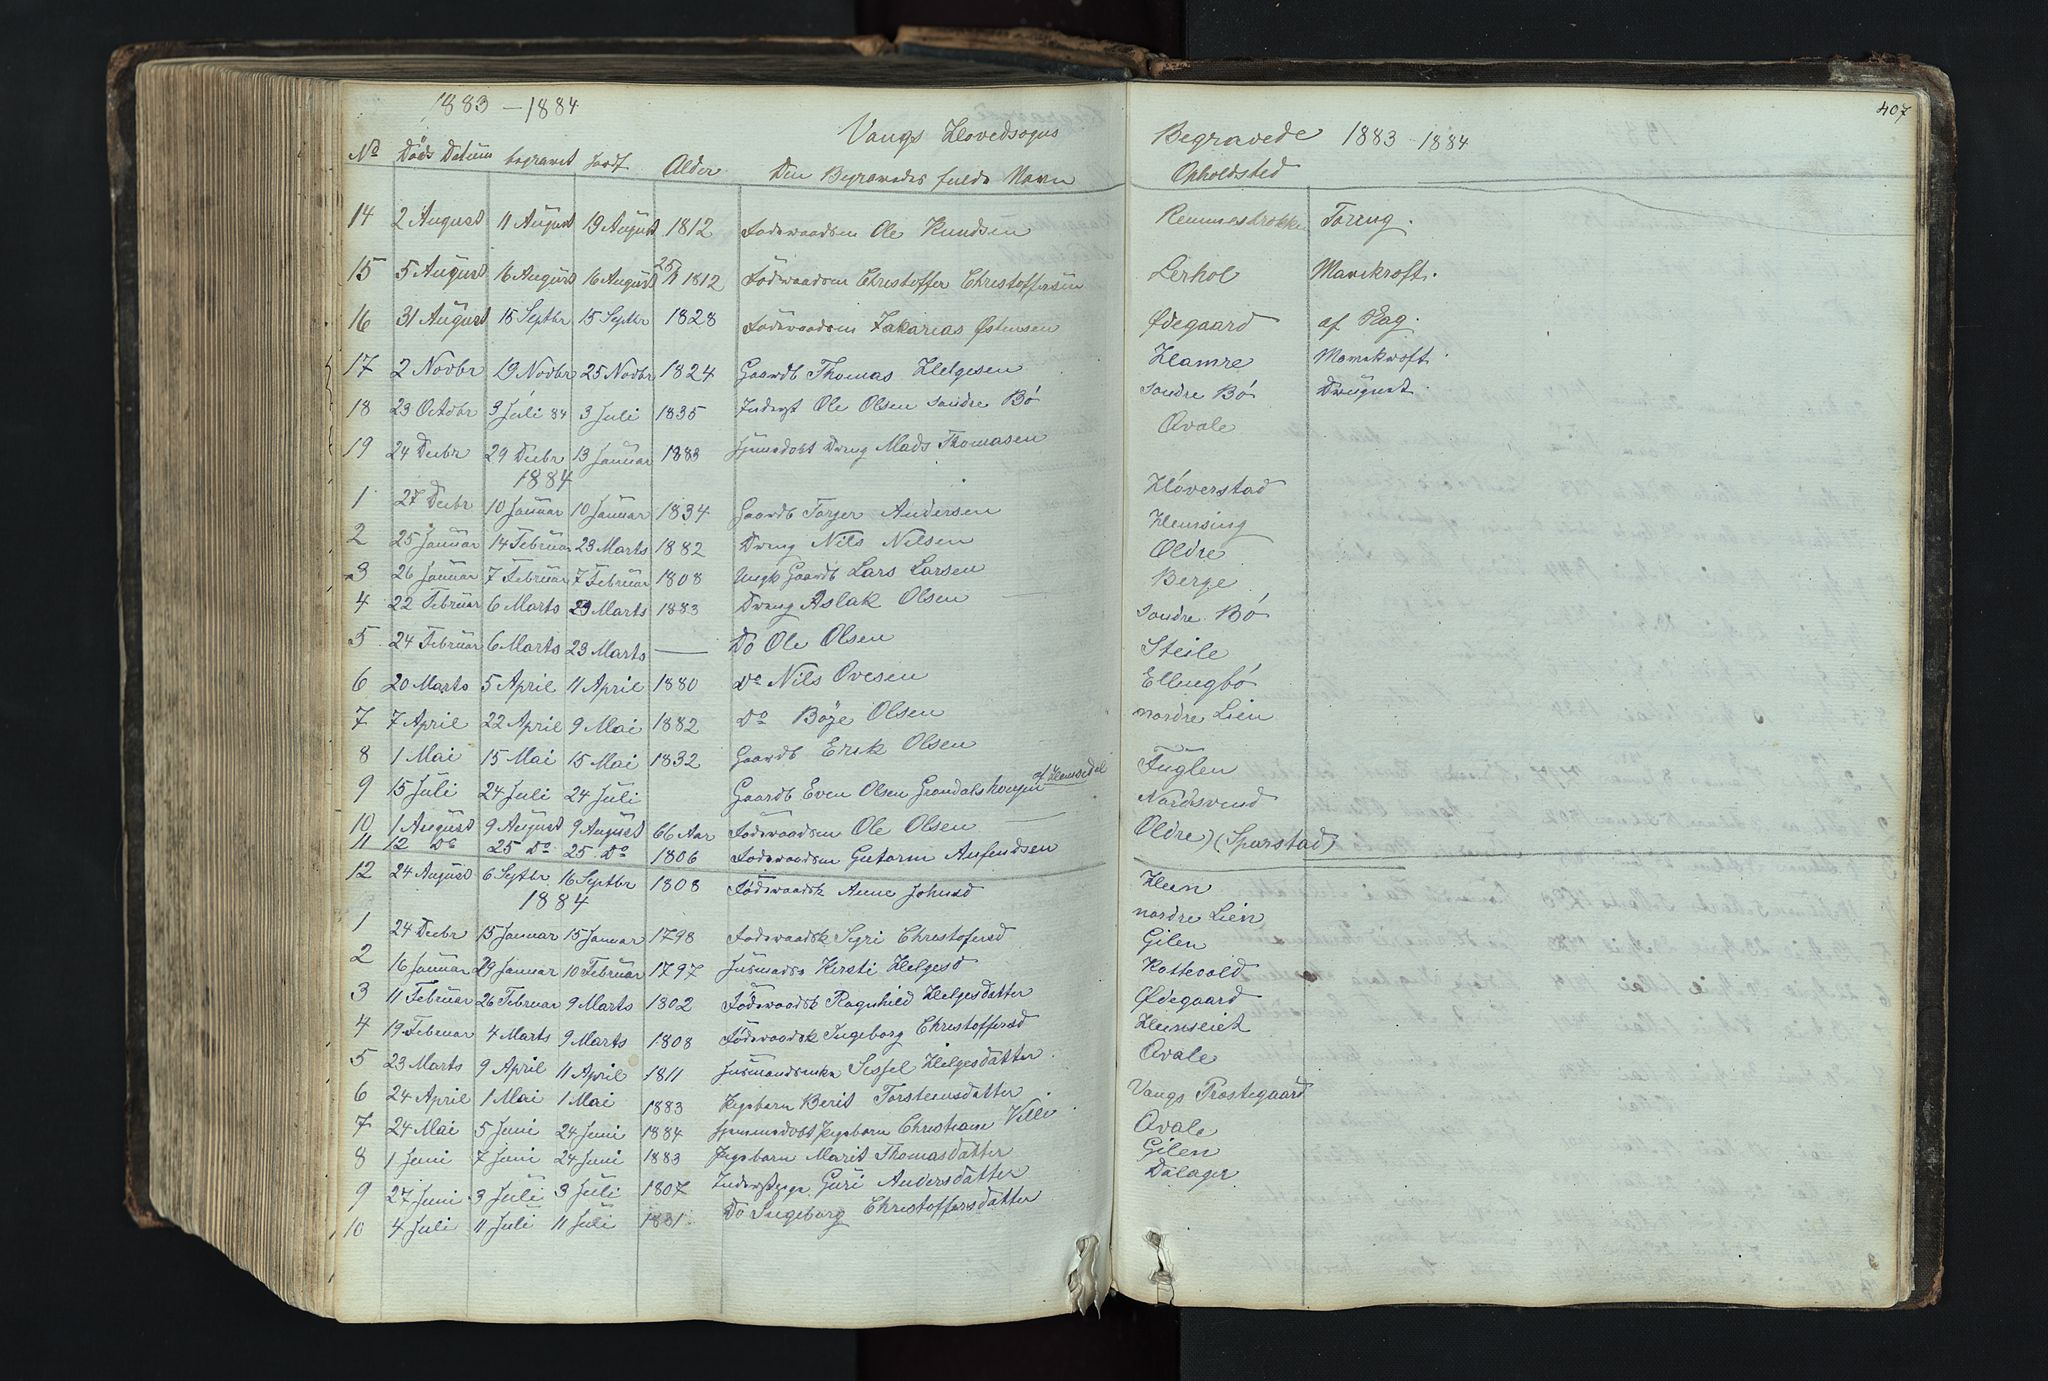 1883 - 1884 Vangs Hovedsogns Begravede 1883 - 1884 407
No Døds Datum begravet Jordf. Alder Den Begravedes fulde Navn Opholdsted
14 2 August 11 August 19 August 1812 Fodsraadsm Ole Knudsen Remmesbrokke
15 5 August 16 August 16 August 25/ 1812 Födsraadsm Christoffer Christoffersen Lerhol
16 31 August 15 Septbr 15 Septbr 1828 Födsraadsm Zakarias Østensen Ødegaard af
17 2 Novbr 19 Novbr 25 Novbr 1824 Gaardb Thomas Helgesen Hamre
18 23 Octobr 3 Juli 84 3 Juli 1835 Inderst Ole Olsen søndre Bø søndre Bø
19 24 Decbr 29 Decbr 13 Januar 1883 hjemmedøbt Dreng Mads Thomasen Qvale
1884
1 27 Decbr 10 Januar 10 Januar 1834 Gaardb Torger Andersen Høverstad
2 25 Januar 14 Februar 23 Marts 1882 Dreng Nils Nilsen Hemsing
3 26 Januar 7 Februar 7 Februar 1808 Ungk Gaardb Lars Larsen Oldre
4 22 Februar 6 Marts 23 Marts 1883 Dreng Aslak Olsen Berge
5 24 Februar 6 Marts 23 Marts — Do Ole Olsen søndre Bø
6 20 Marts 5 April 11 April 1880 Do Nils Ovesen Steile
7 7 April 22 April 9 Mai 1882 Do Böje Olsen Ellingbø
8 1 Mai 15 Mai 15 Mai 1832 Gaardb Erik Olsen nordre Lien
9 15 Juli 24 Juli 24 Juli Gaardb Even Olsen Grøndalshaugen af Hemsedal Fuglen
10 1 August 9 August 9 August 66 Aar Födsraadsm Ole Olsen Nordsvend
11 12 Do 25 Do 25 Do 1806 Fodsraadsm Gutorm Anfendsen Oldre (Sparstad)
12 24 August 6 Septbr 16 Septbr 1808 Födsraadsk Anne Johnsd Hein
1884
1 24 Decbr 15 Januar 15 Januar 1798 Fodsraadsk Sigri Christofersd nordre Lien
2 16 Januar 29 Januar 10 Februar 1797 Kersti Helgesd Gilen
3 11 Februar 26 Februar 9 Marts 1802 Födsraadsk Ragnhild Helgesdatter Kattevold
4 19 Februar 4 Marts 9 Marts 1808 Födsraadsk Ingeborg Christoffersd Ødegaard
5 23 Marts 9 April 11 April 1811 Husmandsenke Sessel Helgesdatter Heinseiet
6 24 April 1 Mai 1 Mai 1883 Pigebarn Berit Torsteinsdatter Qvale
7 24 Mai 5 Juni 24 Juni 1884 hjemmedöbt Pigebarn Christiane Ville Vangs Præstegaard
8 1 Juni 7 Juni 24 Juni 1883 Pigebarn Marit Thomasdatter Qvale
9 27 Juni 3 Juli 3 Juli 1807 Inderstpige Guri Andersdatter Gilen
10 4 Juli 11 Juli 11 Juli 1831 Do Ingeborg Christoffersdatter Dalager